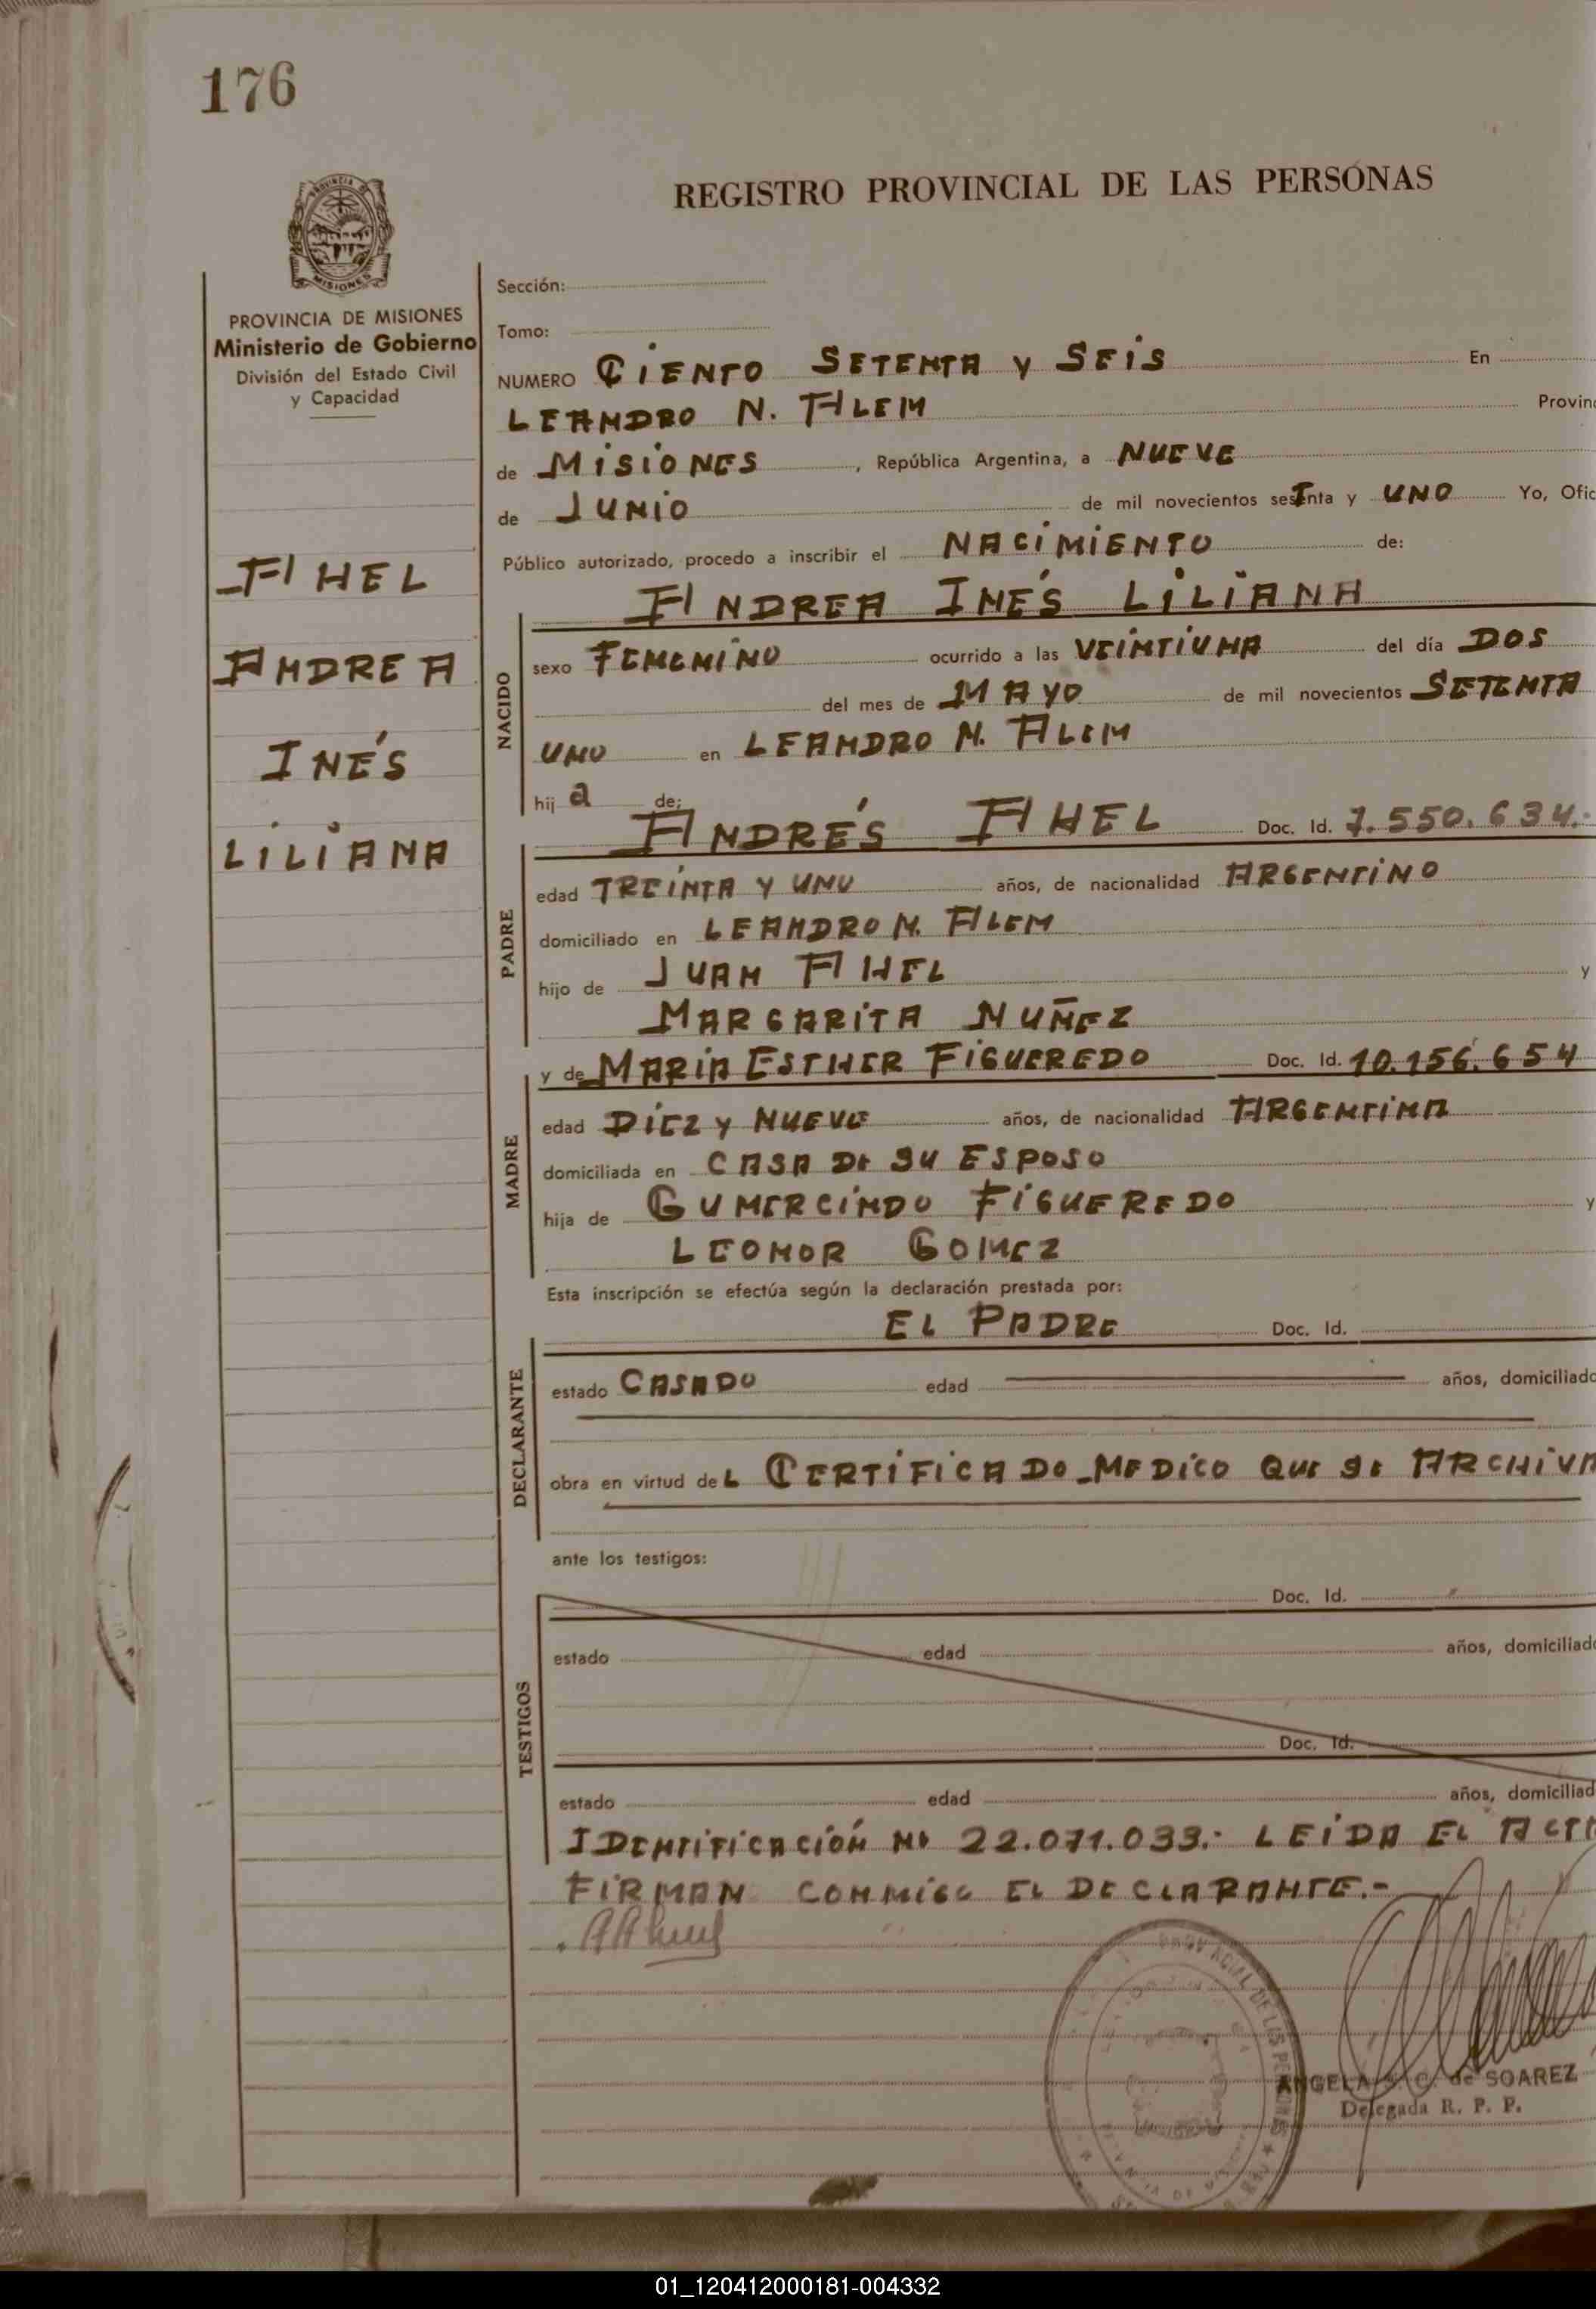 176
REGISTRO PROVINCIAL DE LAS PERSONAS
PROVINCIA DE
MISIONES
PROVINCIA DE MISIONES
Ministerio de Gobierno
División del Estado Civil
y Capacidad
AHEL
ANDREA
INÉS
LILIANA
Sección:
Tomo:
NUMERO CIENTO SETENTA Y SEIS En
LEANDRO N. ALEM Provinc
de MISIONES, República Argentina, a NUEVE
de JUNIO de mil novecientos setenta y UNO Yo, Ofic
Público autorizado, procedo a inscribir el NACIMIENTO de:
ANDREA INÉS LILIANA
NACIDO
sexo FEMENINO ocurrido a las VEINTIUNA del día DOS
del mes de MAYO de mil novecientos SETENTA
UNO en LEANDRO N. ALEM
hija de:
ANDRÉS AHEL Doc. Id. 7.550.634.-
PADRE
edad TREINTA Y UNO años, de nacionalidad ARGENTINO
domiciliado en LEANDRO N. ALEM
hijo de JUAN AHEL y
MARGARITA NUÑEZ
y de MARIA ESTHER FIGUEREDO Doc. Id. 10.156.654
MADRE
edad DIEZ Y NUEVE años, de nacionalidad ARGENTINA
domiciliada en CASA DE SU ESPOSO
hija de GUMERCINDO FIGUEREDO y
LEONOR GOMEZ
Esta inscripción se efectúa según la declaración prestada por:
EL PADRE Doc. Id.
DECLARANTE
estado CASADO edad años, domiciliado
obra en virtud deL CERTIFICADO MEDICO QUE SE ARCHIVA
ante los testigos:
Doc. Id.
TESTIGOS
estado edad años, domiciliado
Doc. Id.
estado edad años, domiciliad
IDENTIFICACIÓN Nº 22.071.033.- LEIDA EL ACTA
FIRMAN CONMIGO EL DECLARANTE.-
ANGELA C. de SOAREZ
Delegada R. P. P.
01_120412000181-004332